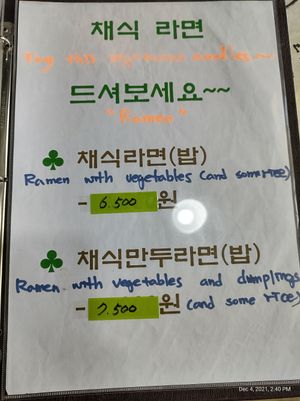 채식 라면
Try this vegetarian noodles~
드셔보세요~~
"Ramen"
♣ 채식라면(밥)
Ramen with vegetables (and some rice)
- 6.500 원
♣ 채식만두라면(밥)
Ramen with vegetables and dumplings
- 7.500 원 (and some rice)
Dec 4, 2021, 2:40 PM